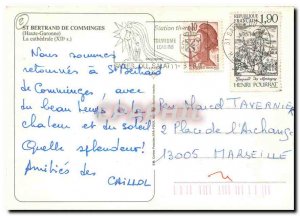 ST BERTRAND DE COMMINGES
(Haute-Garonne)
La cathédrale (XIIe s.)
Station thermale
1,90
HENRI POURRAT
Nous sommes
retournés à St Bertrand
de Comminges, avec
du beau temps, de la
chaleur et du soleil
Quelle splendeur!
Amitiés des
CAILLOL
Marcel TAVERNIER
2 Place de l'Archange
13005 MARSEILLE